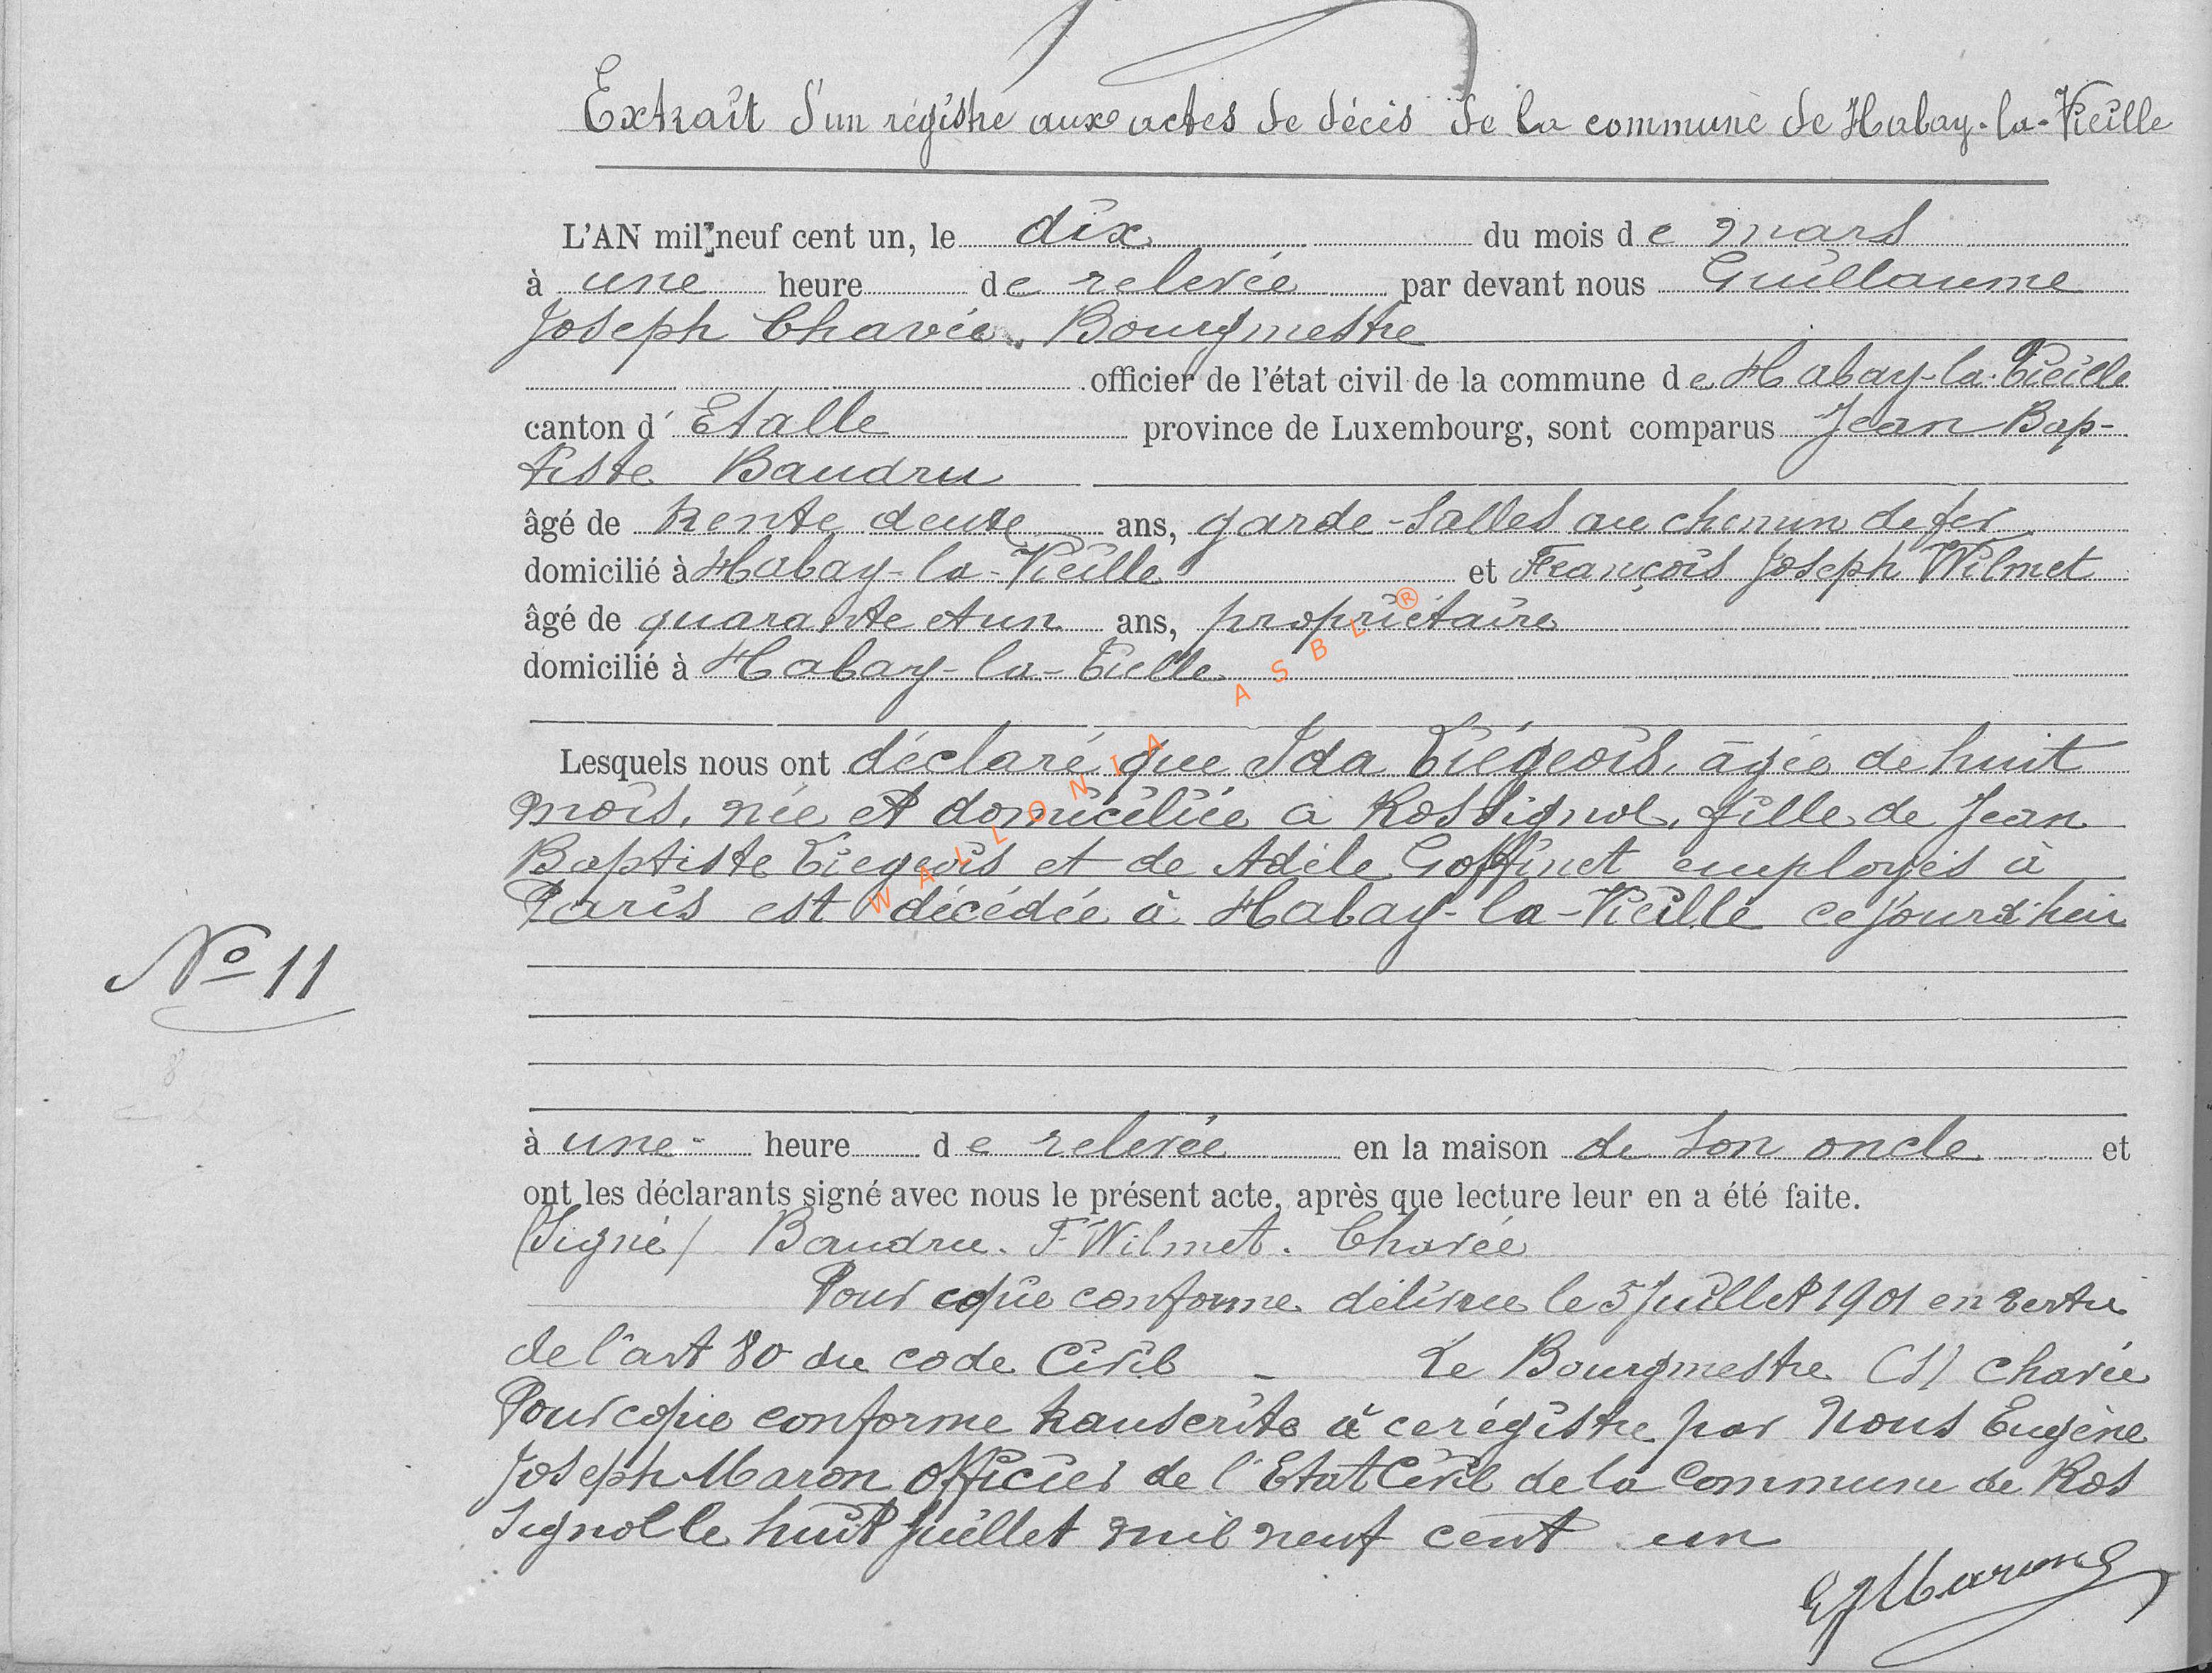 Extrait d'un régistre aux actes de décès de la commune de Habay-la-Vieille
L'AN mil neuf cent un, le dix du mois de mars
à une heure de relevée par devant nous Guillaume
Joseph Chavée, Bourgmestre
officier de l'état civil de la commune de Habay-la-Vieille
canton d'Etalle province de Luxembourg, sont comparus Jean Bap-
tiste Baudru
âgé de trente deux ans, garde-salles au chemin de fer
domicilié à Habay-la-Vieille et François Joseph Wilmet
âgé de quarante et un ans, propriétaire
domicilié à Habay-la-Vielle
Lesquels nous ont déclaré que Ida Liégeois, âgée de huit
mois, née et domiciliée à Rossignol, fille de Jean
Baptiste Liegeois et de Adèle Goffinet employés à
Paris est décédée à Habay-la-Vieille ce jourd'hui
No 11
à une heure de relevée en la maison de son oncle et
ont les déclarants signé avec nous le présent acte, après que lecture leur en a été faite.
(Signé) Baudru. F. Wilmet. Chavée
Pour copie conforme délivrée le 5 Juillet 1901 en vertu
de l'art 80 du code Civil - Le Bourgmestre (S) Chavée
Pour copie conforme transcrite à ce régistre par Nous Eugène
Joseph Maron officier de l'Etat Civil de la Commune de Ros
signol le huit juillet mil neuf cent un
EJMaron
WALLONIA ASBL ®